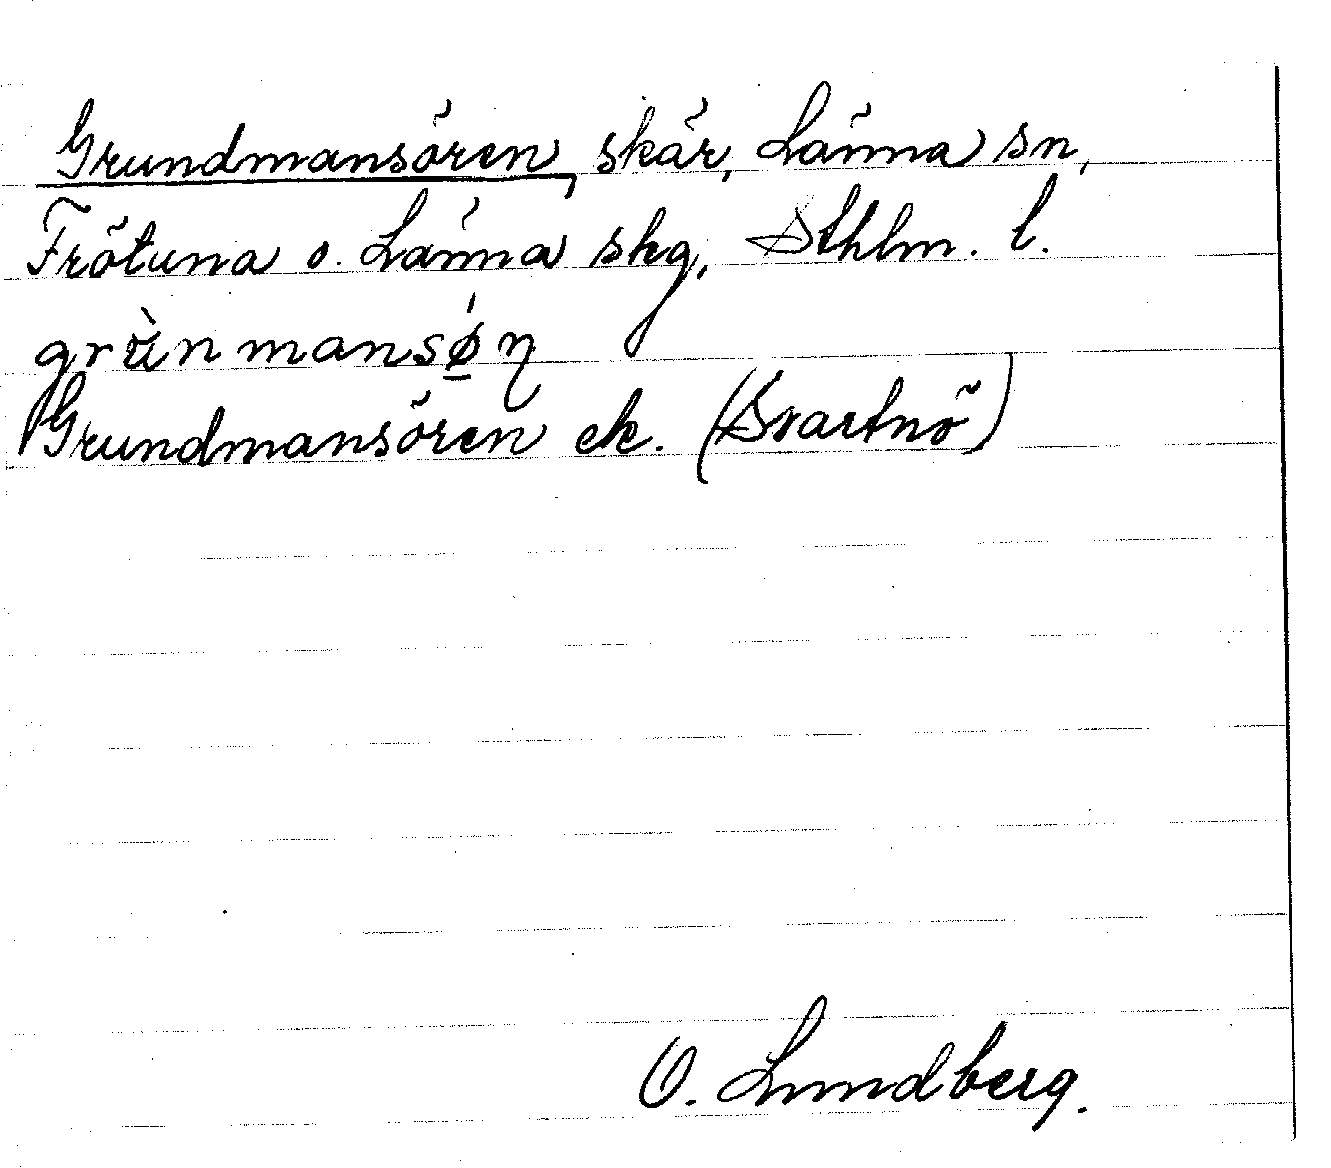 Grundmansören, skär, Länna sn,
Frötuna o. Länna skg, Sthlm. l.
grùnmansǿ̠ɳ
Grundmansören ek. (Svartnö)
O. Lundberg.